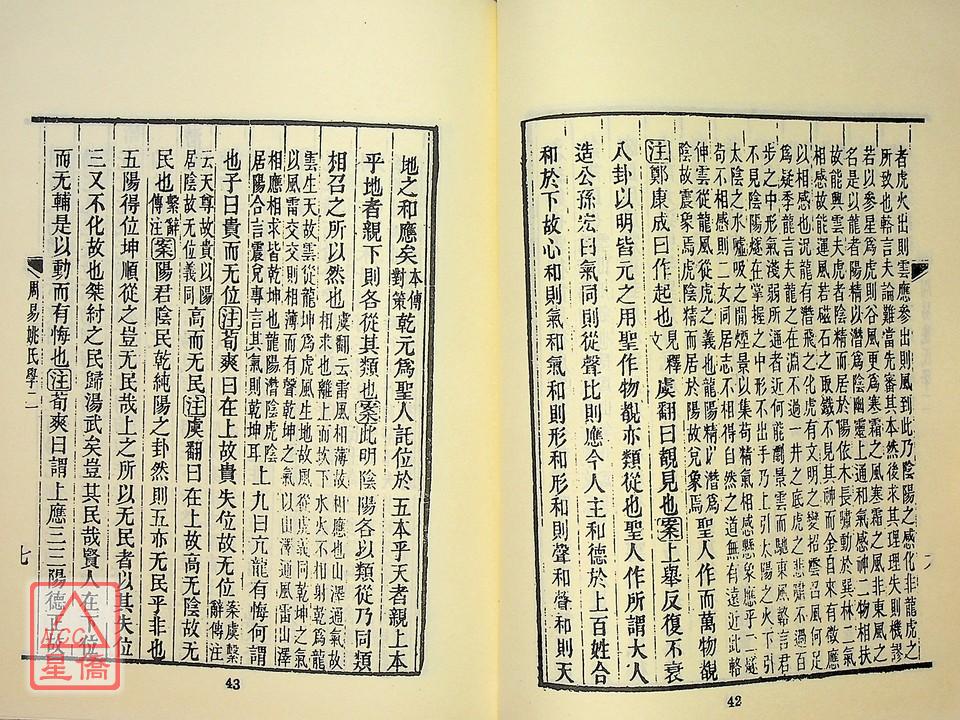 者虎火出則雲應參出則風到此乃陰陽之感化非龍虎之
所致也輅言夫論難當先審其本然後求其理理失則機謬
若以參星爲虎則谷風更爲寒霜之風寒霜之風非東風之
名是以龍者陽精以潛爲陰幽靈上通和氣感神二物相扶
故能興雲夫虎者陰精而居於陽依木長嘯動於巽林二氣
相感故能運風若磁石之取鐵不見其神而金自來有徵應
以相感也況龍有潛飛之化虎有文明之變招雲召風何足
爲疑季龍言夫龍之在淵不過一井之底虎之悲嘯不過百
步之中形氣淺弱所通者近何能劇景雲而馳東風輅言君
不見陰陽燧在掌握之中形不出手乃上引太陽之火下引
太陰之水噓吸之間煙景以集苟精氣相感懸象應乎二燧
苟不相感則二女同居志不相得自然之道無有遠近此輅
伸雲從龍風從虎之義也龍陽精以潛爲
陰故震象焉虎陰精而居於陽故兌象焉聖人作而萬物覩
注鄭康成曰作起也釋文虞翻曰覩見也案上舉反復不衰
八卦以明皆元之用聖作物覩亦類從也聖人作所謂大人
造公孫宏曰氣同則從聲比則應今人主和德於上百姓合
和於下故心和則氣和氣和則形和形和則聲和聲和則天
42
地之和應矣本傳對策乾元爲聖人託位於五本乎天者親上本
乎地者親下則各從其類也案此明陰陽各以類從乃同類
相召之所以然也虞翻云雷風相薄故相應也山澤通氣故
相求也離上而坎下水火不相射乾爲龍
雲生天故雲從龍坤爲虎風生地故風從虎義同乾坤之氣
以風雷交交則相薄而有聲乾坤之氣以山澤通風雷山澤
相應相求皆乾坤也龍陽潛陰虎陰
居陽合言震兌專言其氣則乾坤耳上九曰亢龍有悔何謂
也子曰貴而无位注荀爽曰在上故貴失位故无位案虞繫辭傳注
云天尊故貴以陽
居陰故无位義同高而无民注虞翻曰在上故高无陰故无
民也繫辭傳注案陽君陰民乾純陽之卦然則五亦无民乎非也
五陽得位坤順從之豈无民哉上之所以无民者以其失位
三又不化故也桀紂之民歸湯武矣豈其民哉賢人在下位
而无輔是以動而有悔也注荀爽曰謂上應三三陽德正故
周易姚氏學二
七
43
星僑